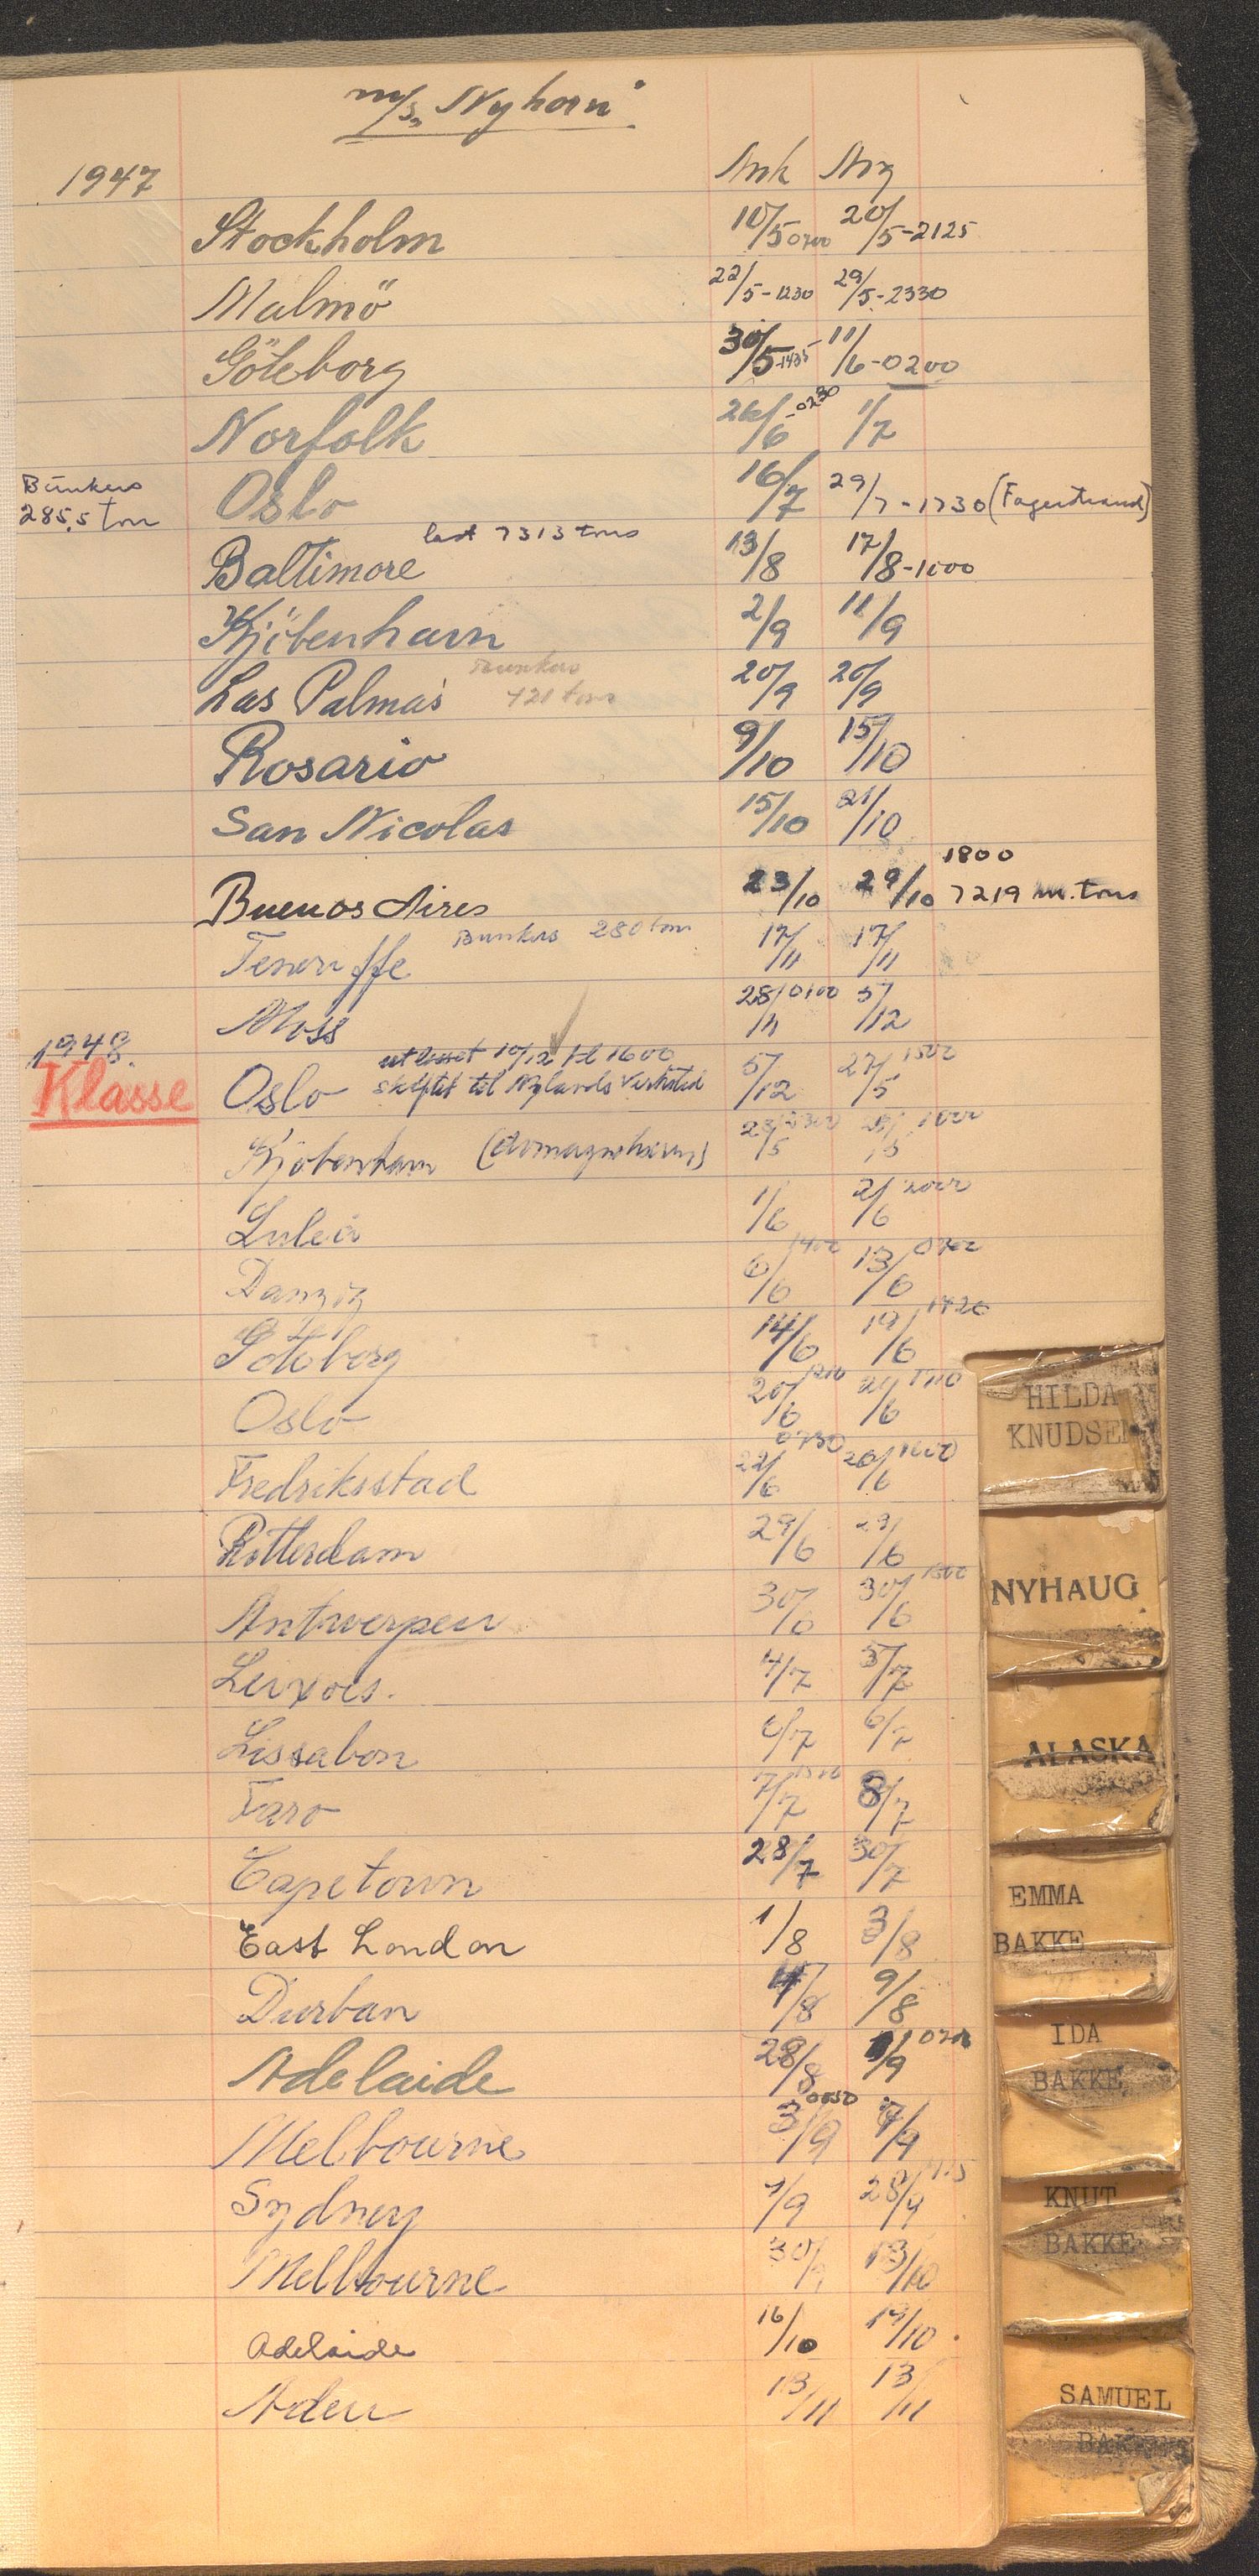 m/s "Nyhorn"
1947 Ank Avg
Stockholm 10/5 0700 20/5-2125
Malmö 22/5-1230 29/5-2330
Göteborg 30/5-1435 11/6-0200
Norfolk 26/6-0230 1/7
Bunkers
285,5 ton Oslo 16/7 29/7-1730 (Fagerstrand)
last 7313 tons
Baltimore 13/8 17/8-1600
Kjöbenhavn 2/9 11/9
Bunkers
Las Palmas 421 tons 20/9 20/9
Rosario 9/10 15/10
San Nicolas 15/10 21/10
1800
Buenos Aires 23/10 29/10 7219 m. tons
Bunkers 280 tons
Teneriffe 17/11 17/11
Moss 28/11 0100 5/12
1948. utlosset 10/12 kl 1600
Klasse Oslo skiftet til Nylands Verksted 5/12 27/5 1500
Kjøbenhavn 2300
Luleå 1/6 2/6 2000
Danzig 6/6 1400 13/6
Göteborg 14/6 19/6 1420
Oslo 20/6
Fredriksstad 22/6 0730 26/6 1600
Rotterdam 29/6 29/6
Antwerpen 30/6 30/6 1500
Leixoes. 4/7 5/7
Lissabon 6/7 6/7
Faro 7/7 8/7
Capetown 28/7 30/7
East London 1/8 3/8
Durban 4/8 9/8
Adelaide 28/8 1/9
Melbourne 3/9 7/9
Sydney 28/9
Melbourne 30/9 13/10
Adelaide 16/10 19/10.
Aden 13/11 13/11
HILDA
KNUDSEN
NYHAUG
ALASKA
EMMA
BAKKE
IDA
BAKKE
KNUT
BAKKE
SAMUEL
BAKKE